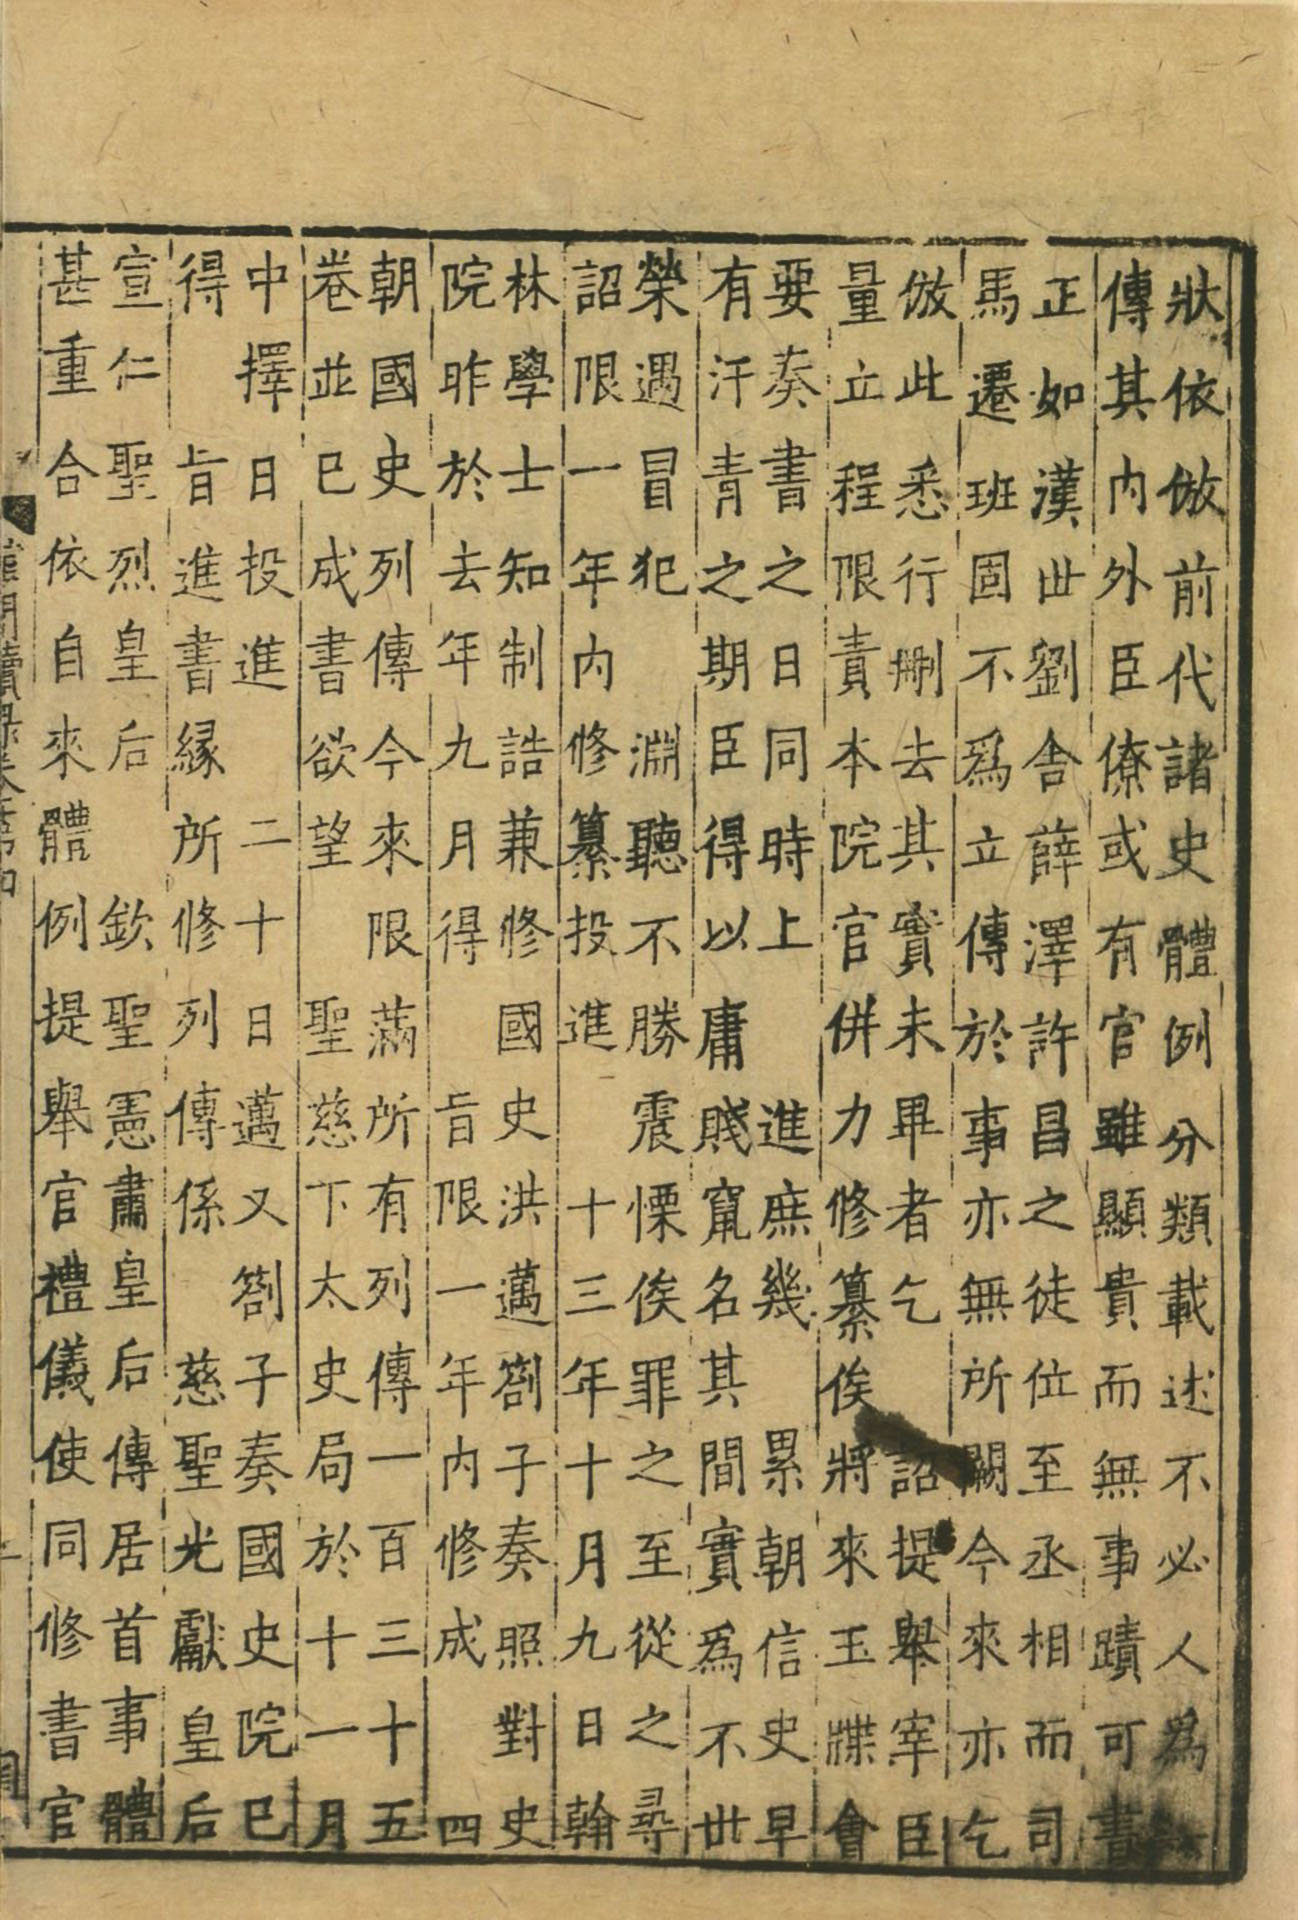 狀依倣前代諸史體例分類載述不必人爲
傳其内外臣僚或有官雖顯貴而無事蹟可書
正如漢世劉舍薛澤許昌之徒位至丞相而司
馬遷班固不爲立傳於事亦無所闕今來亦乞
倣此悉行刪去其實未畢者乞 詔提舉宰臣
量立程限責本院官併力修纂俟將來玉牒會
要奏書之日同時上 進庶幾 累朝信史早
有汗青之期臣得以庸賤竄名其間實爲不世
榮遇冒犯 淵聽不勝震慄俟罪之至從之尋
詔限一年内修纂投進 十三年十月九日翰
林學士知制誥兼修國史洪邁劄子奏照對史
院昨於去年九月得 旨限一年内修成 四
朝國史列傳今來限滿所有列傳一百三十五
卷並已成書欲望 聖慈下太史局於十一月
中擇日投進 二十日邁又劄子奏國史院已
得 旨進書緣所修列傳係 慈聖光獻皇后
宣仁聖烈皇后 欽聖憲肅皇后傳居首事體
甚重合依自來體例提舉官禮儀使同修書官